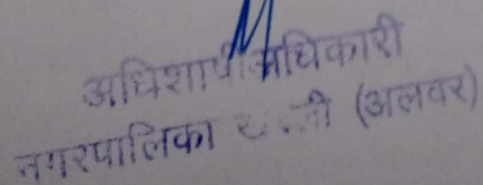 अधिशाषी अधिकारी
नगरपालिका (अलवर)